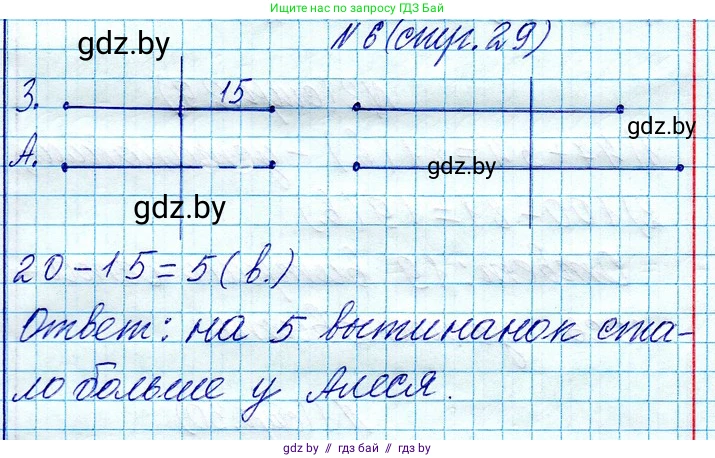 Ищите нас по запросу ГДЗ Бай
gdz.by
№ 6 (стр. 29)
З. 15
gdz.by
А.
gdz.by
gdz.by
20 - 15 = 5 (в.)
Ответ: на 5 вытинанок ста-
ло больше у Алеся.
gdz.by // гдз бай // гдз by